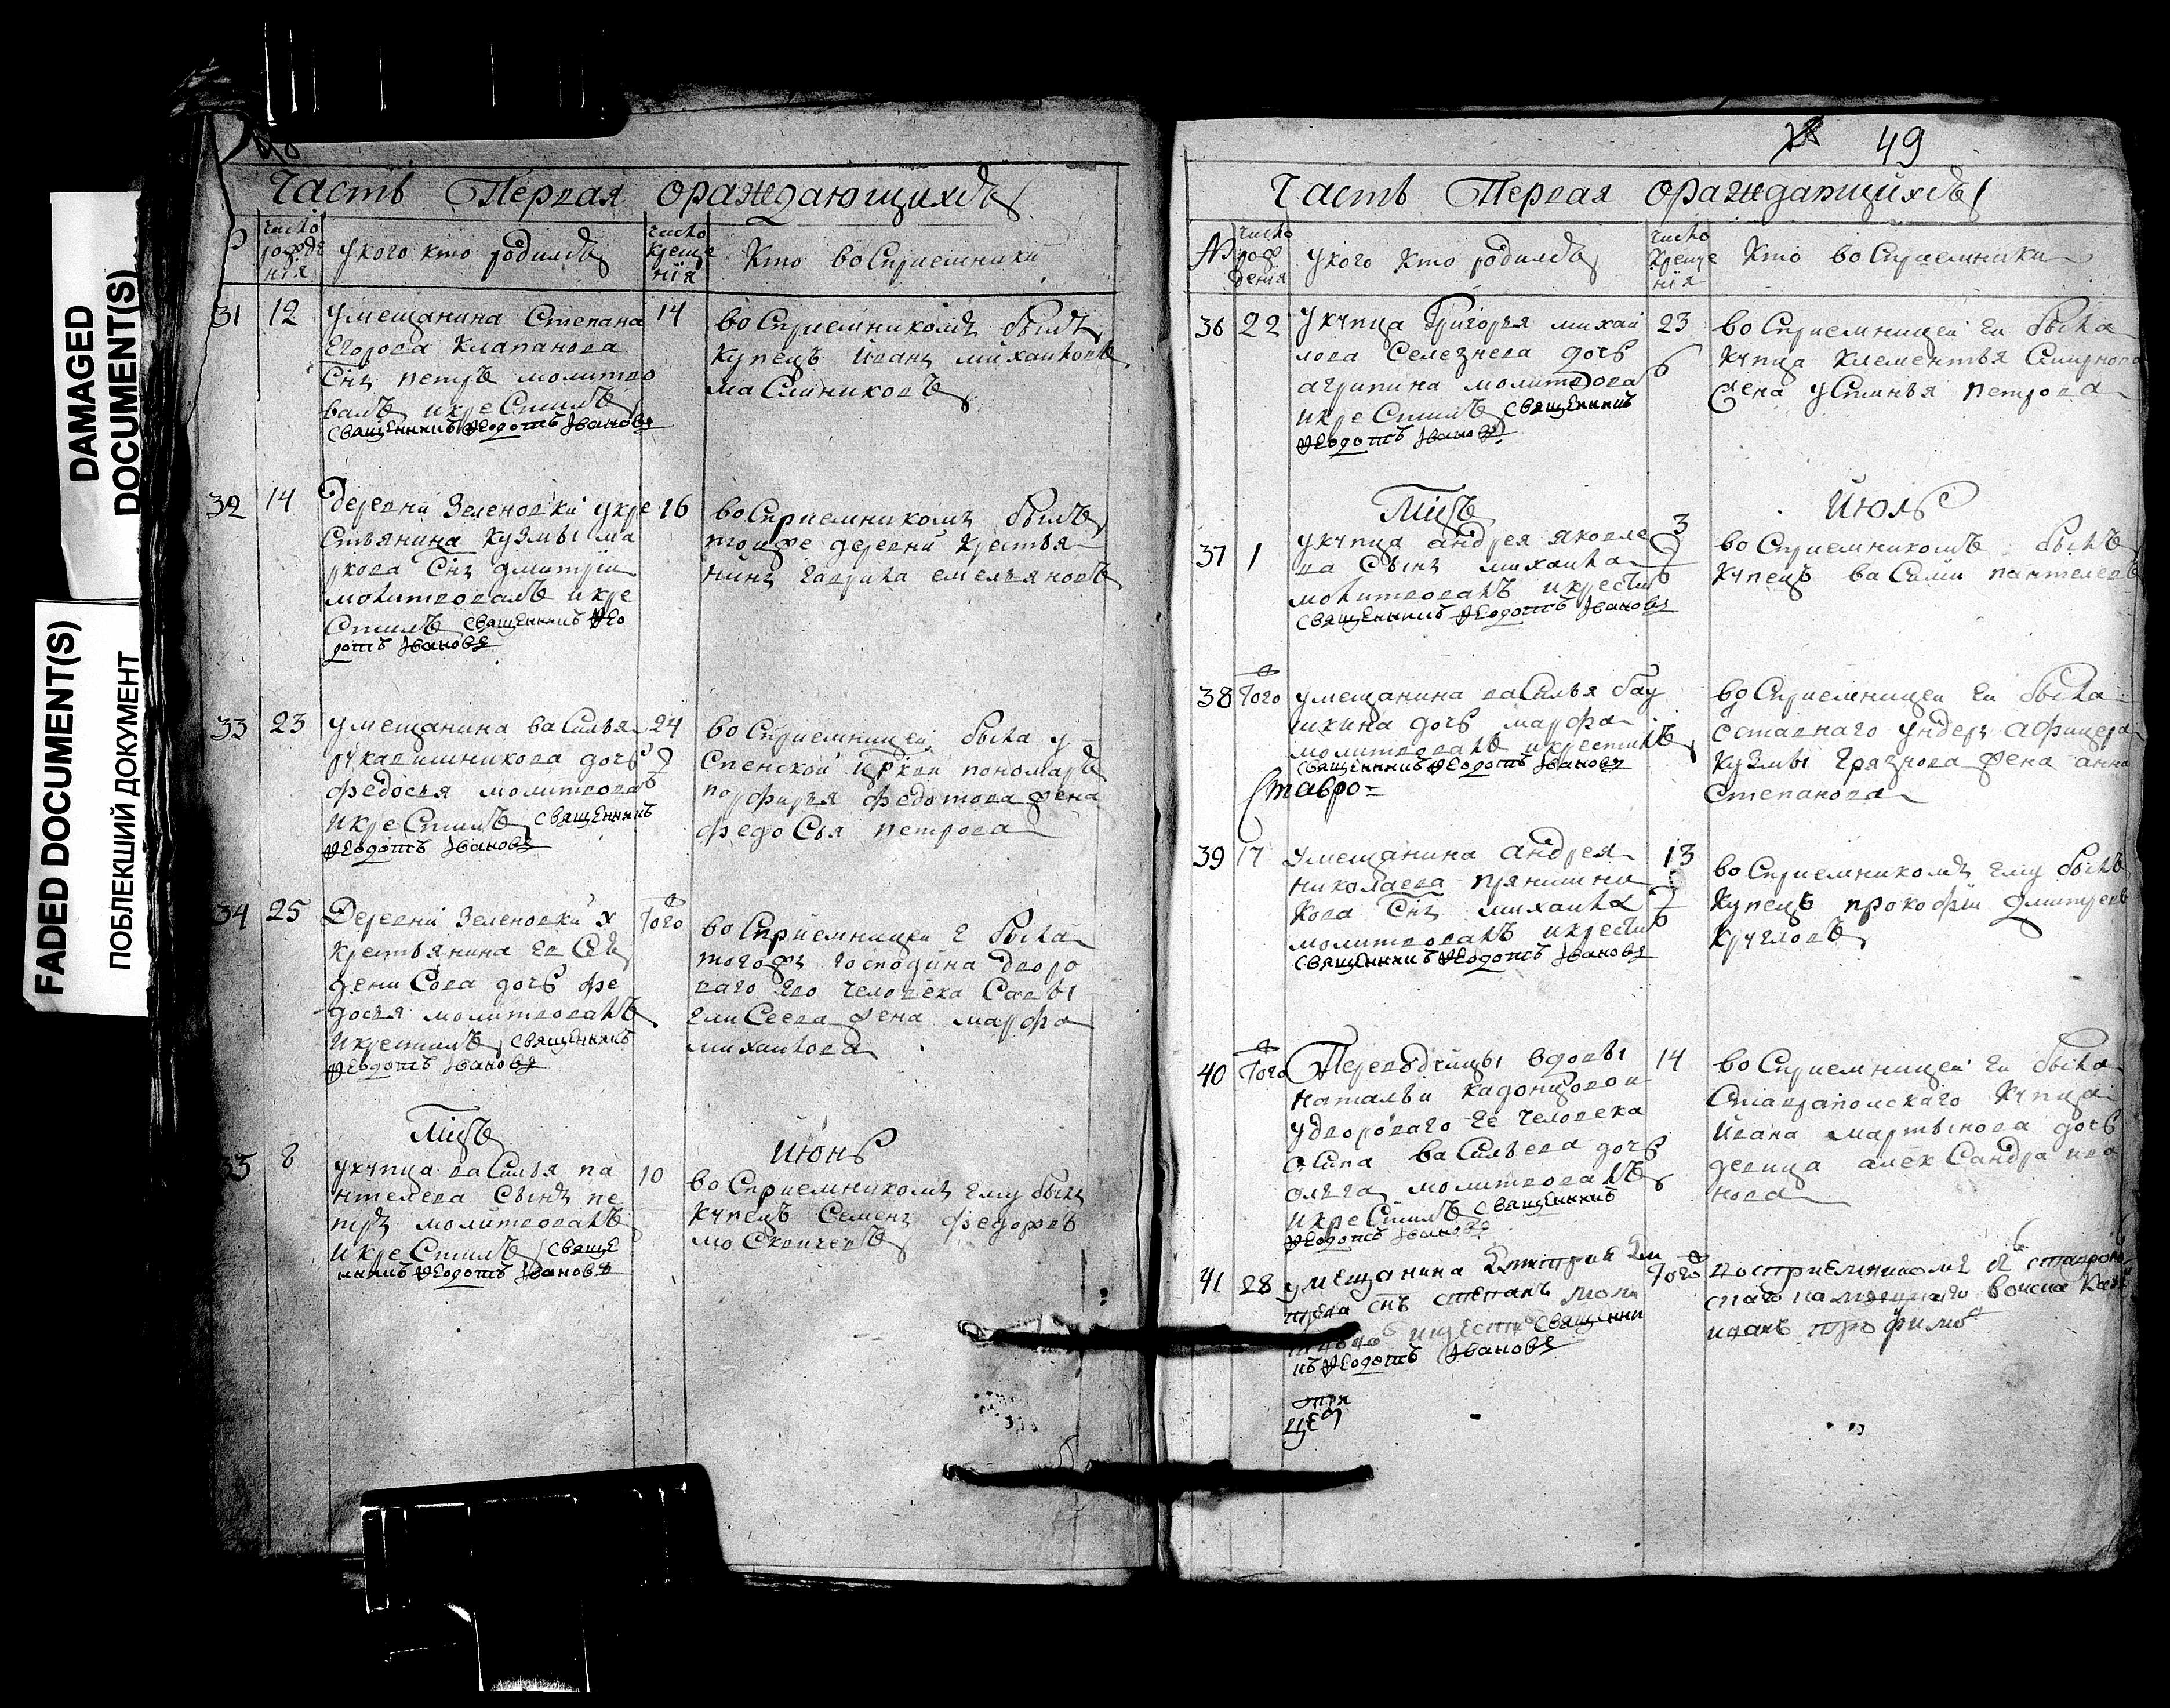 DAMAGED
DOCUMENT(S)
FADED DOCUMENT(S)
ПОБЛЕКШИЙ ДОКУМЕНТ
Часть Первая ораждающихсѧ
число рожденія
у кого кто родилсѧ
число крещенія
Кто восприемники
31 12 Умещанина Степана 14
Егорова Клапанова
Снъ петръ молитво
валъ икрестилъ
священникъ Ѳеодотъ Iвановъ
восприемникомъ былъ
купецъ Иванъ михаиловъ
масляниковъ
32 14 деревни Зеленовки укре 16
стьянина Кузмы ма
ркова Снъ дмитрiи
молитвовалъ икре
стилъ священникъ Ѳео
дотъ Iвановъ
восприемникомъ былъ
тоижe деревни крестья
нинъ гаврила емельяновъ
33 23 умещанина василья 24
рукавишникова дочь
федосья молитвовалъ
икрестилъ священникъ
Ѳеодотъ Iвановъ
восприемницей была у
спенской церкви пономаря
порфирья федотова жена
федосья петрова
34 25 Деревни Зеленовки у того
крестьянина
денисова дочь фе
досья молитвовалъ
икрестилъ священникъ
Ѳеодотъ Iвановъ
восприемницей е была
тогожъ господина дворо
ваго его человека Савы
елисеева жена марфа
михаилова
Мцъ Июнь
35 8 укупца василья па 10
нтелева сынъ пе
тръ молитвовалъ
икрестилъ свяще
нникъ Ѳеодотъ Iвановъ
восприемникомъ ему былъ
купецъ Семенъ федоровъ
москвичевъ
49
Часть Первая ораждающихсѧ
№ число рожденія
у кого кто родилсѧ
число крещенія
Кто восприемники
36 22 Укупца Григорья михаи 23
лова Селезнева дочь
агрипина молитвова
икрестилъ священникъ
Ѳеодотъ Iвановъ
восприемницей ей была
купца Клементья Смирнова
жена устинья петрова
Мцъ Июль
37 1 укупца андрея яковле 3
ва сынъ михаила
молитвовалъ икрестилъ
священникъ Ѳеодотъ Iвановъ
восприемникомъ былъ
купецъ василий пантелевъ
38 того умещанина василья бау
шкина дочь марфа
молитвовалъ икрестилъ
священникъ Ѳеодотъ Iвановъ
Ставро=
восприемницей ей была
отставнаго ундеръ афицера
Кузмы Грязнова жена анна
степанова
39 17 умещанина андрея 13
николаева прянишни
кова Снъ михаила
молитвовалъ икрестилъ
священникъ Ѳеодотъ Iвановъ
восприемникомъ ему былъ
купецъ прокофiи дмитреевъ
кругловъ
40 того Переводчицы вдовы 14
натальи кадонцовои
удвороваго её человека
осипа васильева дочь
ольга молитвовалъ
икрестилъ священникъ
Ѳеодотъ Iвановъ
восприемницей ей была
ставрапольскаго купца
Ивана мартынова дочь
девица александра ива
нова
41 28 умещанина Дмитрия Дми того
треева снъ степанъ моли
священни
къ Ѳеодотъ Iвановъ
восприемникомъ ставропо
войска